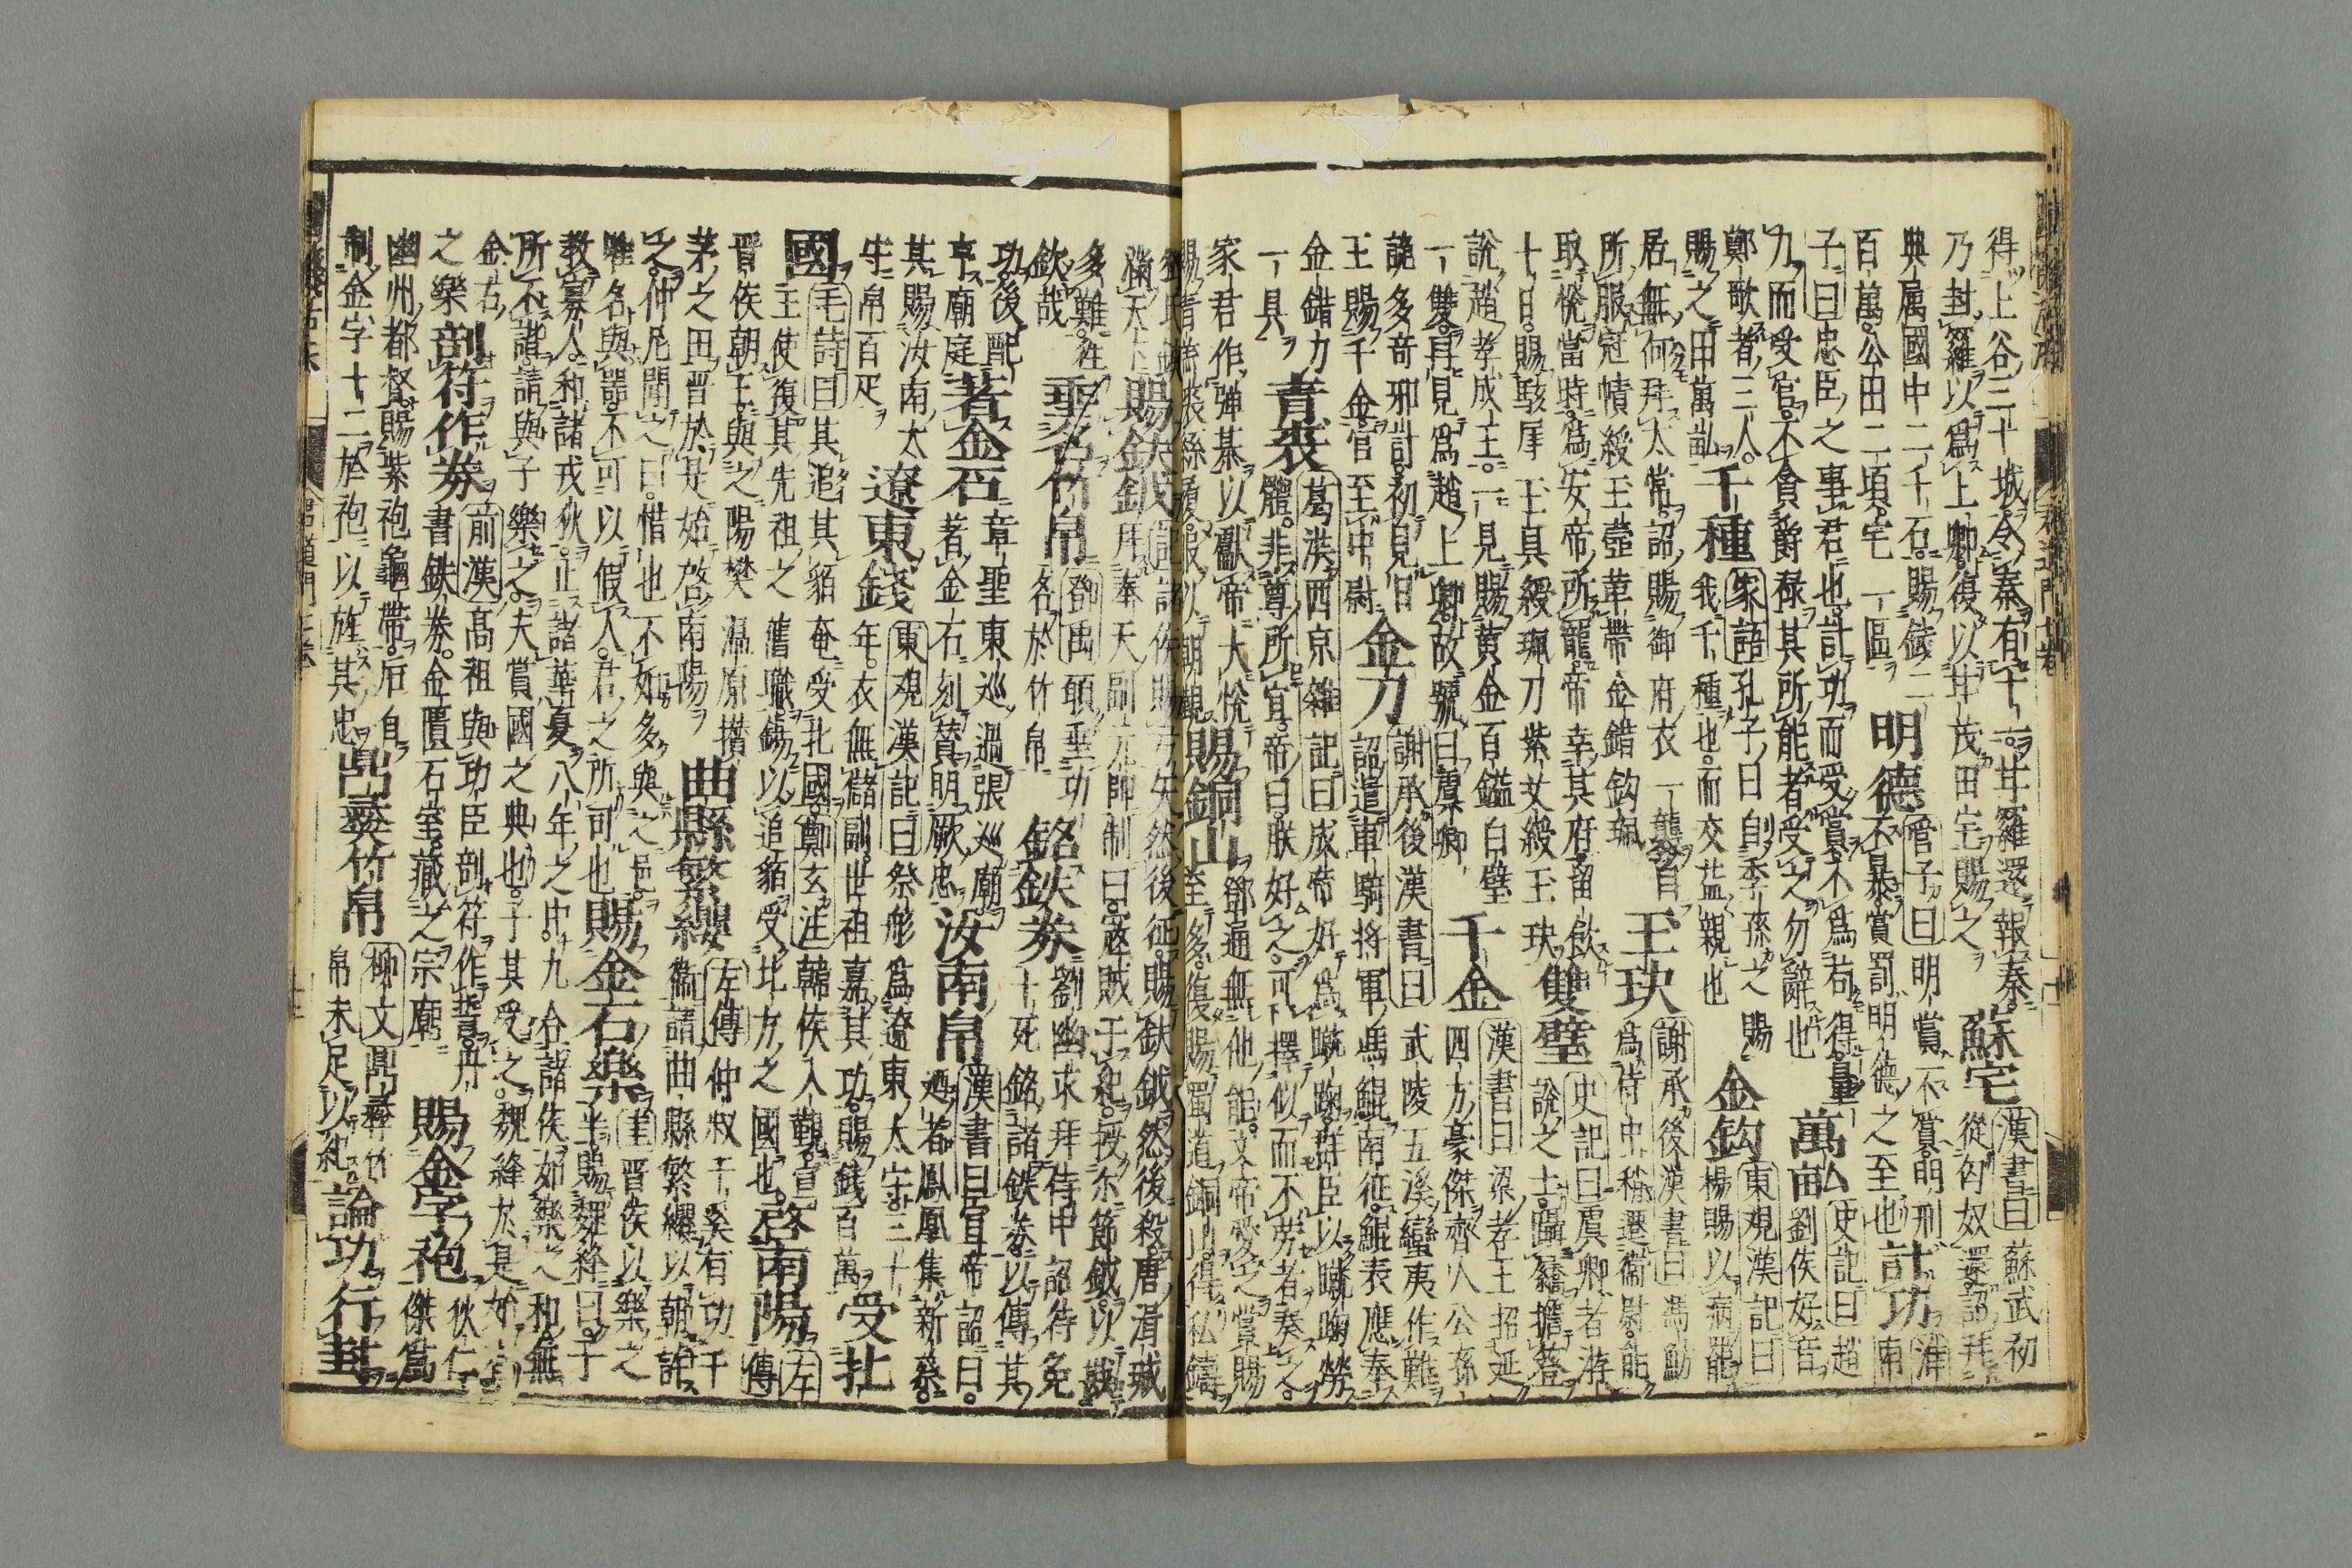 得上谷三十城令秦有十一甘羅還報秦
乃封羅以為上卿復以甘茂田宅賜之
蘇宅
漢書曰蘇武初
從匈奴還詔拜
典屬國中二千石賜錢二
百萬公田二頃宅一區
明德
管子曰明賞不
不暴賞罰明德之至也
計功
子曰忠臣之事君也計功而受賞不為苟得量
九而受官不貪爵祿其所能者受之勿辭也
萬畝
史記曰趙
劉侯好音
鄭歌者三人
賜之田萬畝
千種
家語孔子曰自季孫之賜
我千種也而交益親也
金鈎
東觀漢記曰
楊賜以病罷
居無何拜太常詔賜御府衣一襲自
所服冠幘綬玉壺革帶金錯鈎珮
玉玦
謝承後漢書曰馮魴
為侍中稍遷衛尉能
取悅當時為安帝所寵帝幸其府留飲
十日賜駁犀玉具綬珮刀紫艾綬玉玦
雙璧
史記曰虞卿者游
說之士躡蹻擔簦
說趙孝成王一見賜黃金百鎰白璧
一雙再見為趙上卿故號曰虞卿
千金
漢書曰梁孝王招延
四方豪傑齊人公孫
詭多奇邪計初見日
王賜千金官至中尉
金刀
謝承後漢書曰武陵五溪蠻夷作難
詔遣車騎將軍馮緄南征緄表應奉
金錯刀
一具
青裘
葛洪西京雜記曰成帝好為蹴踘群臣以蹴踘勞
體非尊所宜帝曰朕好之可擇似而不勞者奏之
家君作彈碁以獻帝大悅
賜青羔裘絲履服以朝覲
賜銅山
鄧通無他能文帝愛之賞賜
至多復賜蜀道銅山得私鑄
賜鈇鉞
然後征賜鈇鉞然後殺唐渾瑊
拜奉天副元帥制曰寇賊于紀授尔節鉞以
多難往
欽哉
垂名竹帛
鄧禹願垂功
名於竹帛
銘鈇券
劉幽求拜侍中詔特免
十死銘諸鐵券以傳其
功後配
享廟庭
著金石
章聖東巡過張巡廟
著金石刻贊明厥忠
汝南帛
漢書曰宣帝詔曰
廼者鳳凰集新蔡
其賜汝南太
守帛百疋
遼東錢
東觀漢記曰祭肜為遼東太守三十
年衣無儲副世祖嘉其功賜錢百萬
受北
國
毛詩曰其追其貊奄受北國鄭玄注韓侯入覲宣
王使復其先祖之舊職錫以追貊受北方之國也
啓南陽
左傳
晉侯朝王與之陽樊溫原攢
茅之田晉於是始啓南陽
曲縣繁纓
左傳仲叔于奚有功千
衛請曲縣繁纓以朝許
之仲尼聞之曰惜也不如多與之邑
唯名與器不可以假人君之所司也
賜金石樂
晉侯以樂之
半賜魏絳曰子
教寡人和諸戎狄正諸華夏八年之中九合諸侯如樂之和無
所不諧請與子樂之夫賞國之典也子其受之魏絳於是始有
金石
之樂
剖符作券
前漢高祖與功臣剖符作誓丹
書鉄券金匱石室藏之宗廟
賜金字袍
狄仁
傑為
幽州都督賜紫袍龜帶后自
制金字十二於袍以旌其忠
鼎彝竹帛
柳文鼎彝竹
帛未足以紀
論功行封